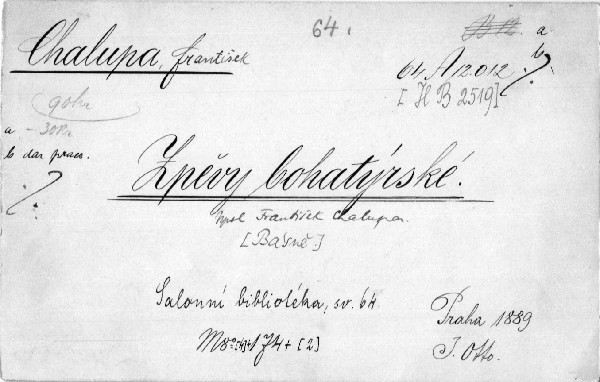 64.
a
b
Chalupa, František
64 A 12.012
[H B 2519]
a - 30Kr
b dar prac.
Zpěvy bohatýrské.
Napsal František Chalupa.
[Básně.]
Salonní bibliotéka, sv. 64
Praha 1889
J. Otto.